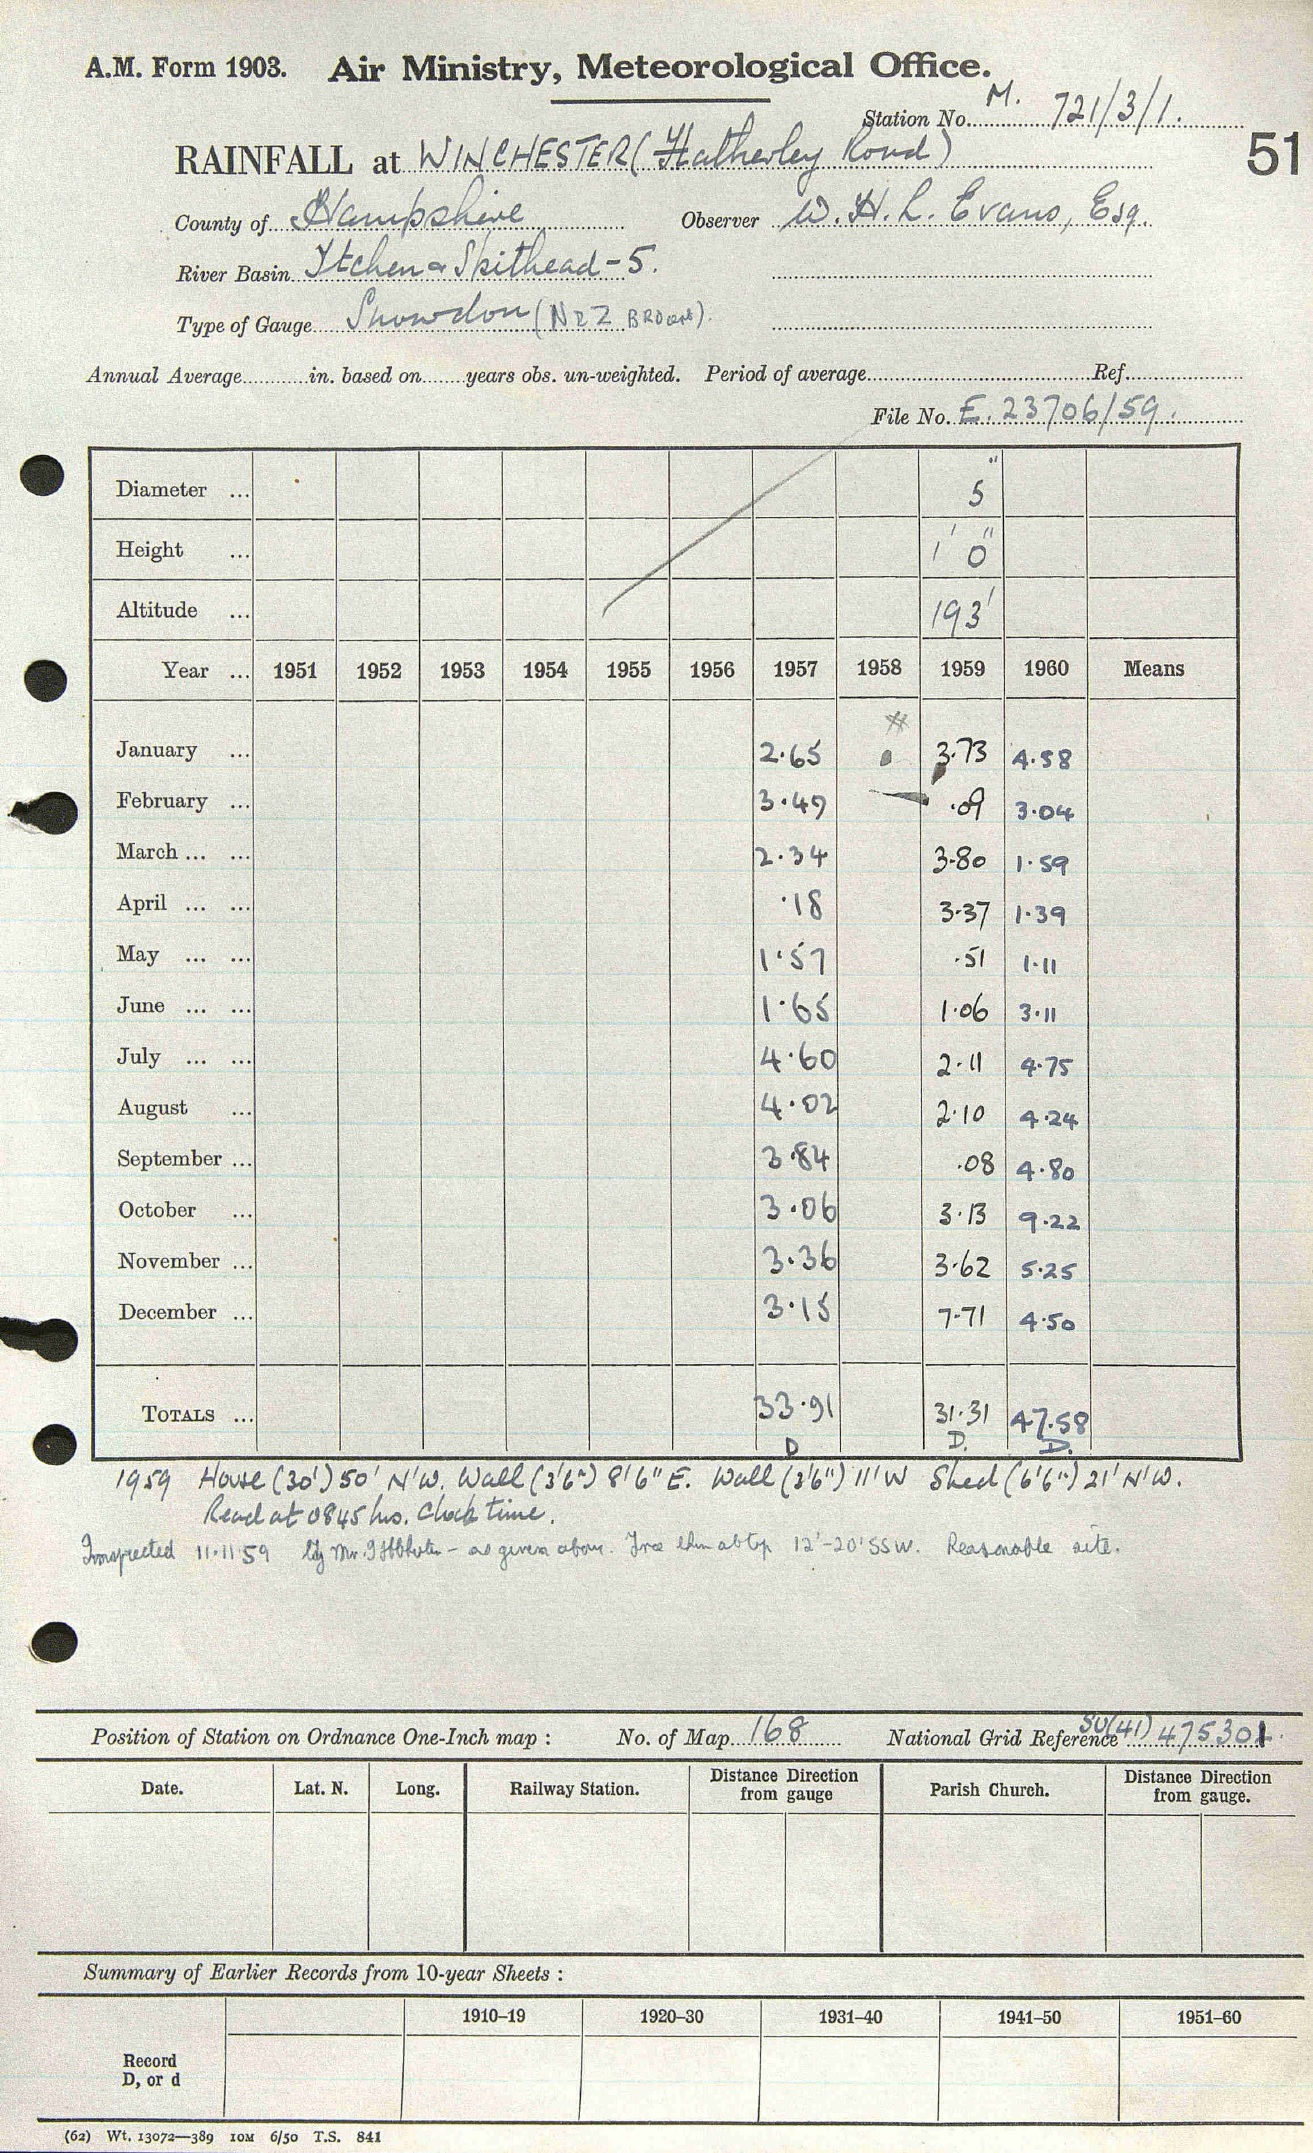 A.M. Form 1903. Air Ministry, Meteorological Office.
Station No. M. 721/3/1.
RAINFALL at WINCHESTER (Hatherley Road)
51
County of Hampshire Observer W. H. L. Evans, Esq.
River Basin Itchen & Spithead - 5.
Type of Gauge Snowdon
Annual Average in. based on years obs. un-weighted. Period of average Ref.
File No. E. 23706/59.
Diameter ... 5"
Height ... 1' 0"
Altitude ... 193'
Year ... 1951 1952 1953 1954 1955 1956 1957 1958 1959 1960 Means
January ... 2.65 3.73 4.58
February ... 3.49 .09 3.04
March ... ... 2.34 3.80 1.59
April ... ... .18 3.37 1.39
May ... ... 1.57 .51 1.11
June ... ... 1.65 1.06 3.11
July ... ... 4.60 2.11 4.75
August ... 4.02 2.10 4.24
September ... 3.84 .08 4.80
October ... 3.06 3.13 9.22
November ... 3.36 3.62 5.25
December ... 3.15 7.71 4.50
TOTALS ... 33.91 31.31 47.58
D D. D.
1959 House (30') 50' N'W. Wall (3'6") 8'6" E. Wall (3'6") 11' W Shed (6'6") 21' N'W.
Read at 0845 hrs. Clock time.
Inspected 11.11.59 by Mr. - as given above. Tree 12'-20' SSW. Reasonable site.
Position of Station on Ordnance One-Inch map : No. of Map 168 National Grid Reference SU(41) 475301
Date. Lat. N. Long. Railway Station. Distance Direction from gauge Parish Church. Distance Direction from gauge.
Summary of Earlier Records from 10-year Sheets :
1910–19 1920–30 1931–40 1941–50 1951–60
Record
D, or d
(62) Wt. 13072—389 10M 6/50 T.S. 841